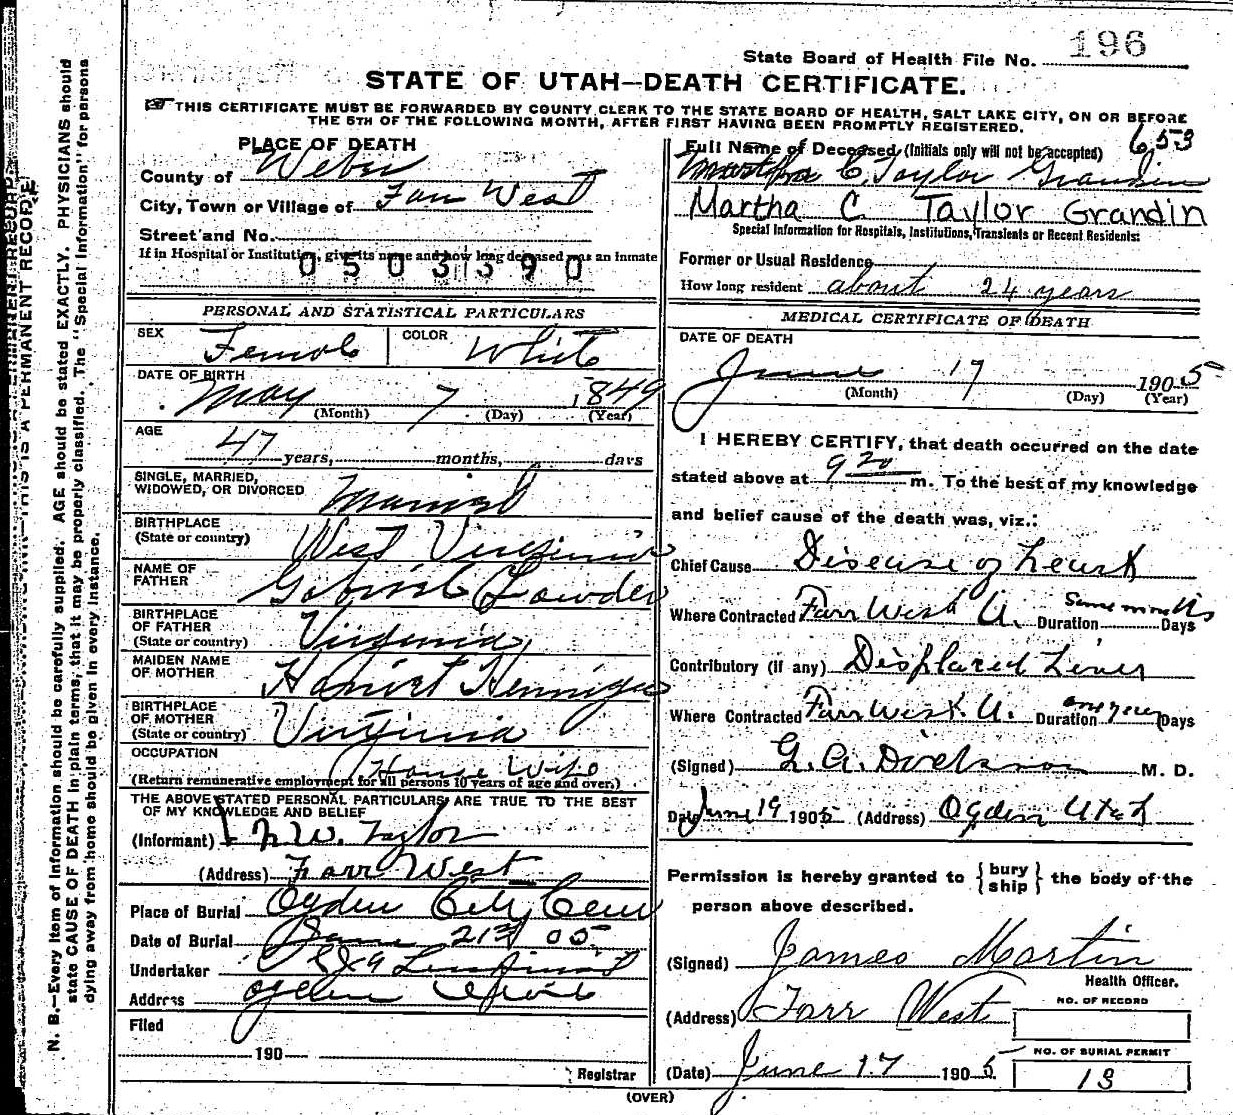 State Board of Health File No. 196
STATE OF UTAH—DEATH CERTIFICATE.
THIS CERTIFICATE MUST BE FORWARDED BY COUNTY CLERK TO THE STATE BOARD OF HEALTH, SALT LAKE CITY, ON OR BEFORE
THE 5TH OF THE FOLLOWING MONTH, AFTER FIRST HAVING BEEN PROMPTLY REGISTERED.
653
PLACE OF DEATH
County of Weber
City, Town or Village of Farr West
Street and No.
If in Hospital or Institution, give its name and how long deceased was an Inmate
0503390
PERSONAL AND STATISTICAL PARTICULARS
SEX Female COLOR White
DATE OF BIRTH
May 7 1849
(Month) (Day) (Year)
AGE
47 years, months, days
SINGLE, MARRIED,
WIDOWED, OR DIVORCED Married
BIRTHPLACE
(State or country) West Virginia
NAME OF
FATHER Gabriel Lowder
BIRTHPLACE
OF FATHER
(State or country) Virginia
MAIDEN NAME
OF MOTHER Harriet
BIRTHPLACE
OF MOTHER
(State or country) Virginia
OCCUPATION
House Wife
(Return remunerative employment for all persons 10 years of age and over.)
THE ABOVE STATED PERSONAL PARTICULARS ARE TRUE TO THE BEST
OF MY KNOWLEDGE AND BELIEF
(Informant) N. W. Taylor
(Address) Farr West
Place of Burial Ogden City Cem
Date of Burial June 21st 05
Undertaker
Address Ogden
Filed
190
Registrar
Full Name of Deceased (Initials only will not be accepted)
Martha C. Taylor Grandin
Martha C Taylor Grandin
Special Information for Hospitals, Institutions, Transients or Recent Residents:
Former or Usual Residence
How long resident about 24 years
MEDICAL CERTIFICATE OF DEATH
DATE OF DEATH
June 17 1905
(Month) (Day) (Year)
I HEREBY CERTIFY, that death occurred on the date
stated above at 9 20 m. To the best of my knowledge
and belief cause of the death was, viz.:
Chief Cause Disease of heart
Where Contracted Farr West U. Duration Some months Days
Contributory (if any) Displaced Liver
Where Contracted Farr West. U. Duration one year Days
(Signed) G. A. Dickson M. D.
Date June 19 1905 (Address) Ogden Utah
Permission is hereby granted to { bury ship } the body of the
person above described.
(Signed) James Martin
Health Officer.
(Address) Farr West
NO. OF RECORD
(Date) June 17 1905
NO. OF BURIAL PERMIT
13
(OVER)
THIS IS A PERMANENT RECORD.
N. B.—Every item of Information should be carefully supplied. AGE should be stated EXACTLY. PHYSICIANS should
state CAUSE OF DEATH in plain terms, that it may be properly classified. The "Special Information" for persons
dying away from home should be given in every instance.